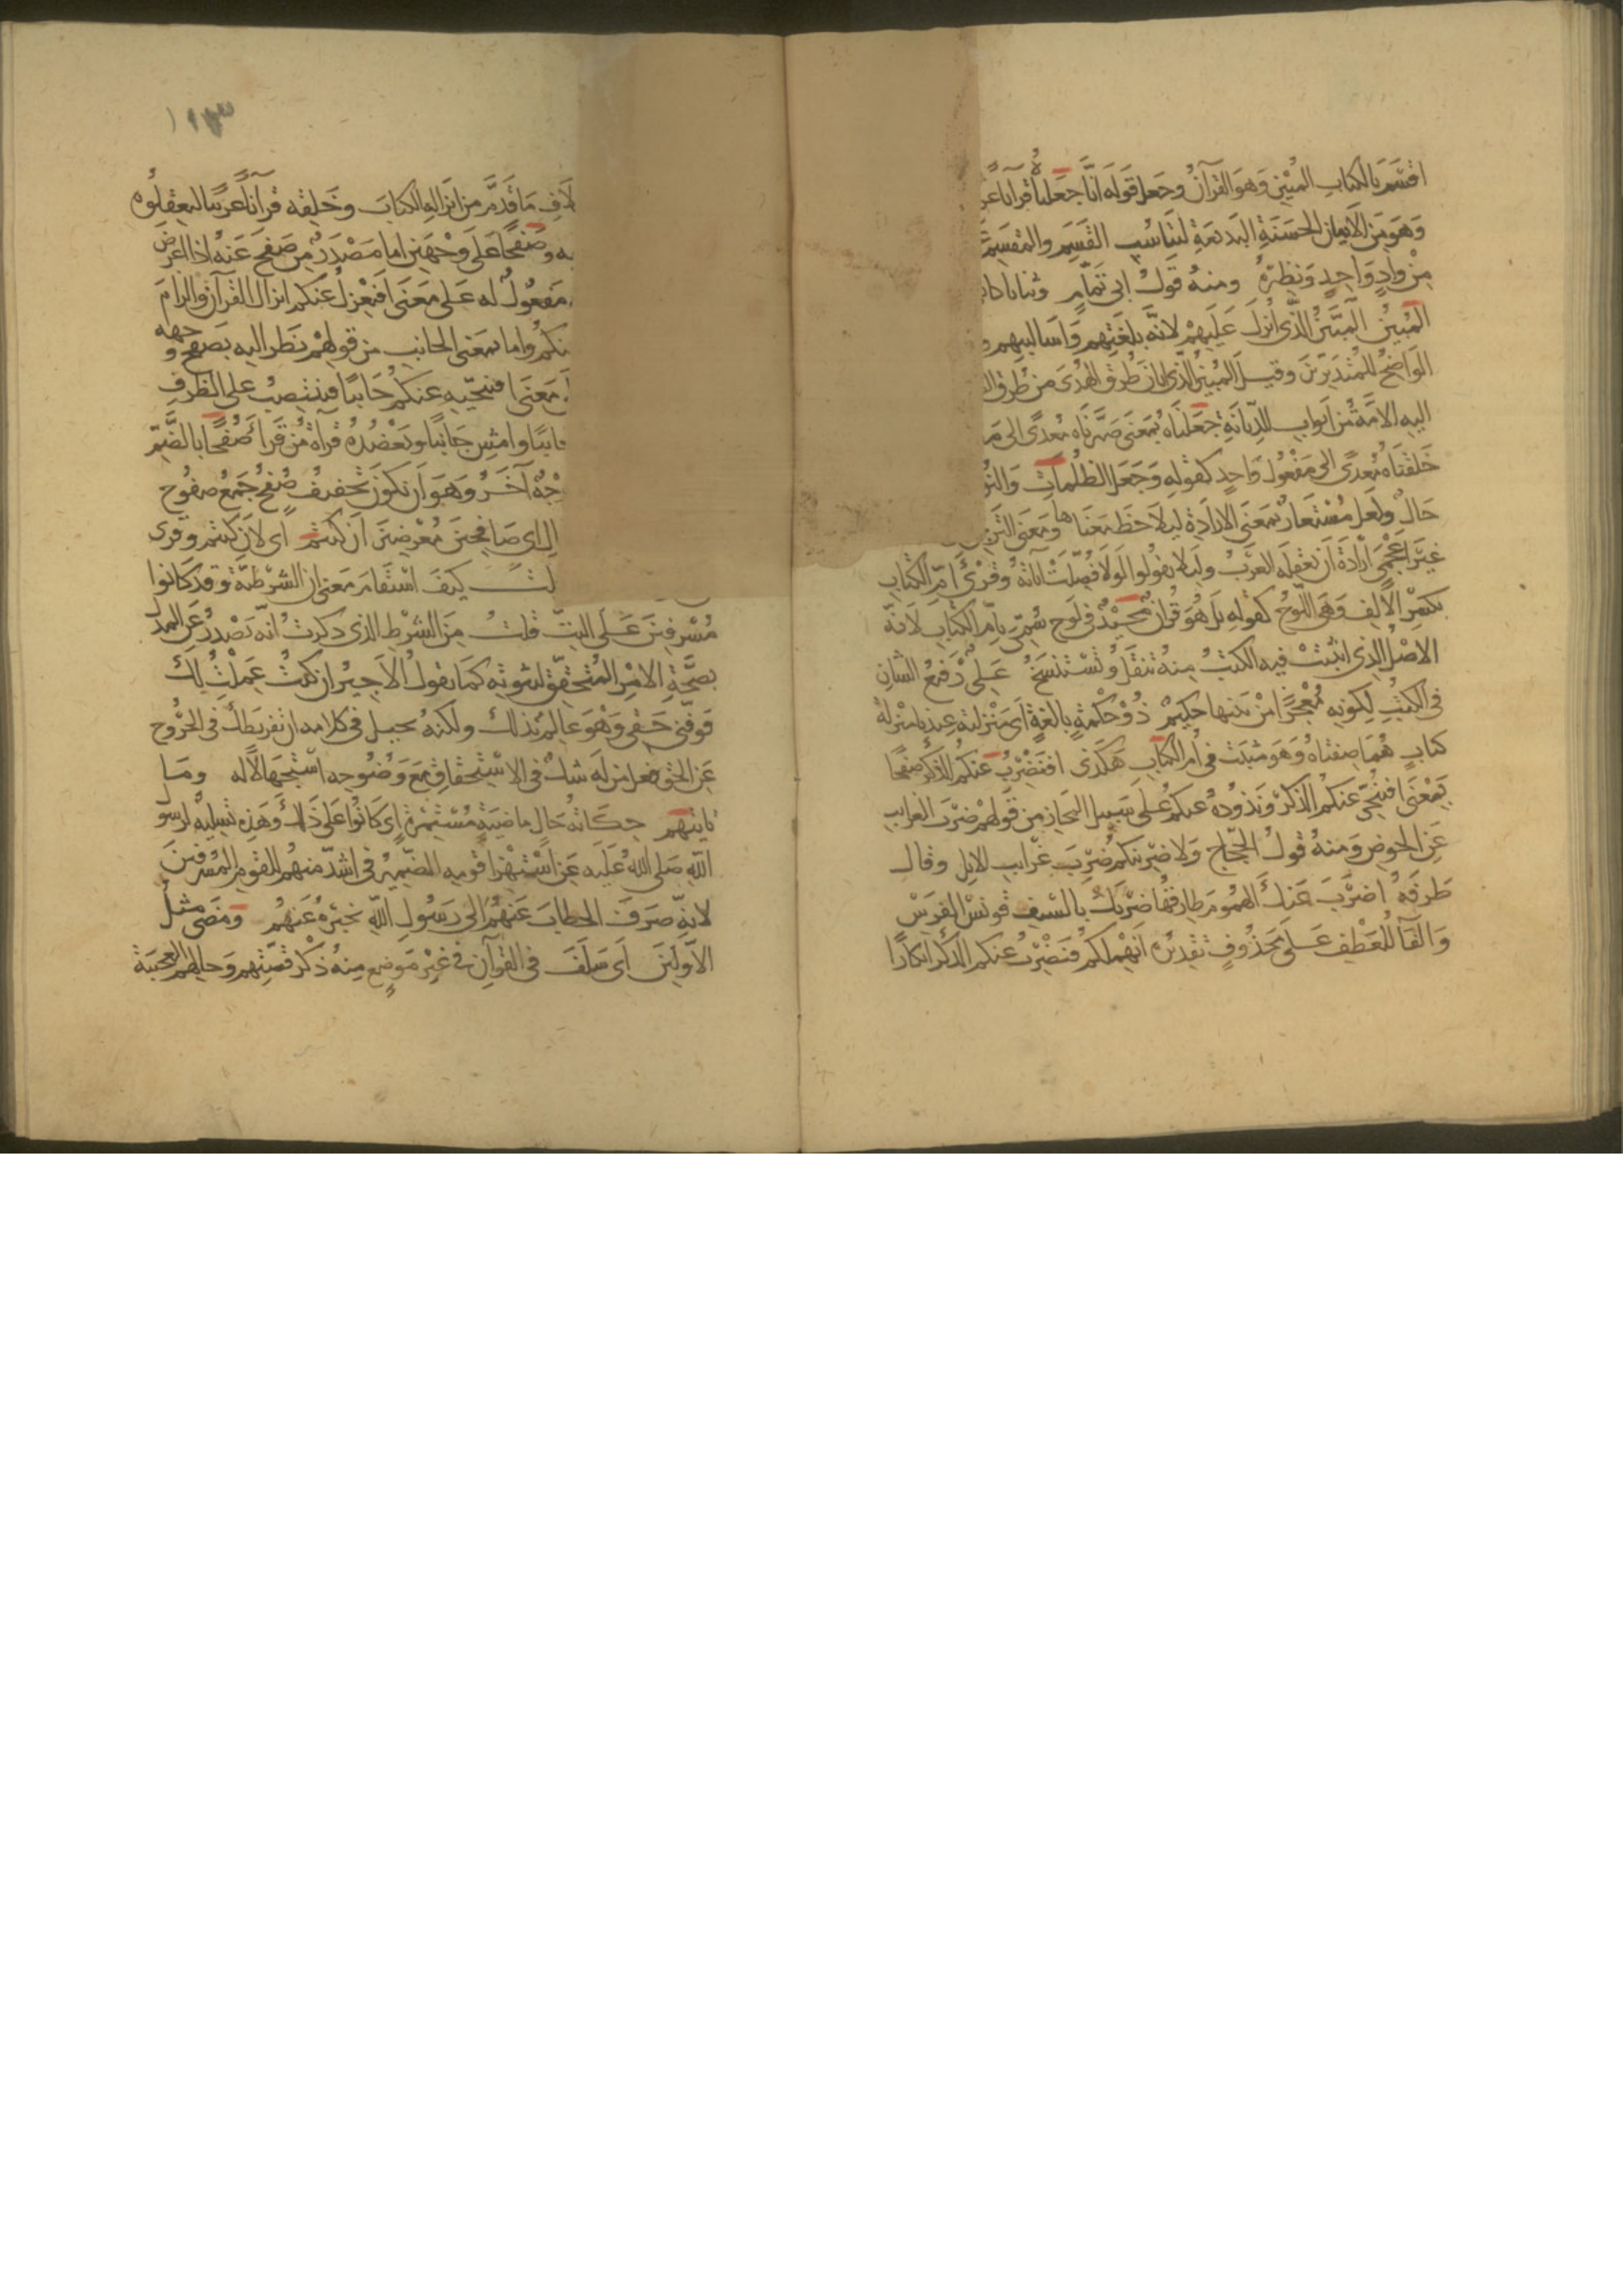 اقسم بالكتاب المبين وهو القرآن وجعل قوله انا جعلناه قرآنا
وهو من الايمان الحسنة البديعة لتناسب القسم والمقسم
من واد واحد ونظيره ومنه قول ابى تمام وثناياك
المبين المبين الذى انزل عليهم لانه بلغتهم واساليبهم
الواضح للمتدبرين وقيل المبين الذى ابان طرق الهدى من طرق
اليه الامة من ابواب الديانة جعلناه بمعنى صيرناه معدى الى
خلقناه معدى الى مفعول واحد كقوله وجعل الظلمات
حال ولعل مستعار بمعنى الارادة ليلاحظ معناها ومعنى
غير اعجمى ارادة ان تعقله العرب وليلا يقولوا لولا فصلت آياته وقرئ ام الكتاب
بكسر الالف وهى اللوح كقوله بل هو قرآن مجيد فى لوح سمى بام الكتاب لانه
الاصل الذى اثبتت فيه الكتب منه تنقل وتستنسخ على رفيع الشان
فى الكتب لكونه معجزا من بينها حكيم ذو حكمة بالغة اى منزلته عندنا منزلة
كتاب هما صفتاه وهو مثبت فى ام الكتاب هكذى افنضرب عنكم الذكر صفحا
بمعنى افننحى عنكم الذكر ونذوده عنكم على سبيل المجاز من قولهم ضرب الغرايب
عن الحوض ومنه قول الحجاج ولاضربنكم ضرب غرايب الابل وقال
طرفه اضرب عنك الهموم طارقها ضربك بالسيف قونس الفرس
والفا للعطف على محذوف تقديره انهملكم فنضرب عنكم الذكر انكارا
١٩٣
ما قدم من انزاله الكتاب وخلقه قرآنا عربيا ليعقلوه
وصفحا على وجهين اما مصدر من صفح عنه اذا اعرض
مفعول له على معنى افنعزل عنكم انزال القرآن والزام
واما بمعنى الجانب من قولهم نظر اليه بصفح وجهه و
معنى افننحيه عنكم جانبا فينتصب على الظرف
وامش جانبا وتعضده قرآة من قرأ صفحا بالضم
آخر وهو ان تكون تخفيف صفح جمع صفوح
اى صافحين معرضين ان كنتم اى لان كنتم وقرى
كيف استقام معنى ان الشرطية وقد كانوا
مسرفين على البت قلت من الشرط الذى ذكرت انه تصدر عن المدل
بصحة الامر المتحقق لثبوته كما يقول الاجير ان كنت عملت لك
فوفنى حقى وهو عالم بذلك ولكنه يخيل فى كلامه ان تفريطك فى الخروج
عن الحق فعل من له شك فى الاستحقاق مع وضوحه استجهالا له وما
ياتيهم حكاية حال ماضية مستمرة اى كانوا على ذلك وهذه تسلية لرسول
الله صلى الله عليه عن استهزا قومه الضمير فى اشد منهم للقوم المسرفين
لانه صرف الخطاب عنهم الى رسول الله يخبره عنهم ومضى مثل
الاولين اى سلف فى القرآن فى غير موضع منه ذكر قصتهم وحالهم العجيبة